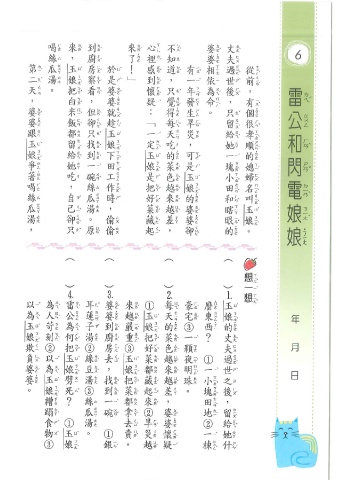 6
雷公和閃電娘娘
年　月　日
從前，有個很孝順的媳婦名叫玉娘。
丈夫過世後，只留給她一塊小田和瞎眼的
婆婆相依為命。
有一年發生旱災，可是玉娘的婆婆卻
不知道，只覺得每天吃的菜色越來越差，
心裡感到懷疑：「一定玉娘是把好菜藏起
來了！」
於是婆婆就趁玉娘下田工作時，偷偷
到廚房察看，但卻只找到一碗絲瓜湯。原
來，玉娘把白米飯都留給她吃，自己卻只
喝絲瓜湯。
第二天，婆婆跟玉娘爭著喝絲瓜湯，
想一想
（　）1.玉娘的丈夫過世之後，留給她什
麼東西？　①一小塊田地②一棟
豪宅③一顆夜明珠。
（　）2.每天的菜色越來越差，婆婆懷疑
①玉娘把好菜都藏起來②旱災越
來越嚴重③玉娘把菜都拿去賣。
（　）3.婆婆到廚房去，找到一碗　①銀
耳蓮子湯②綠豆湯③絲瓜湯。
（　）4.雷公為何把玉娘劈死？　①玉娘
為人苛刻②以為玉娘糟蹋食物③
以為玉娘欺負婆婆。